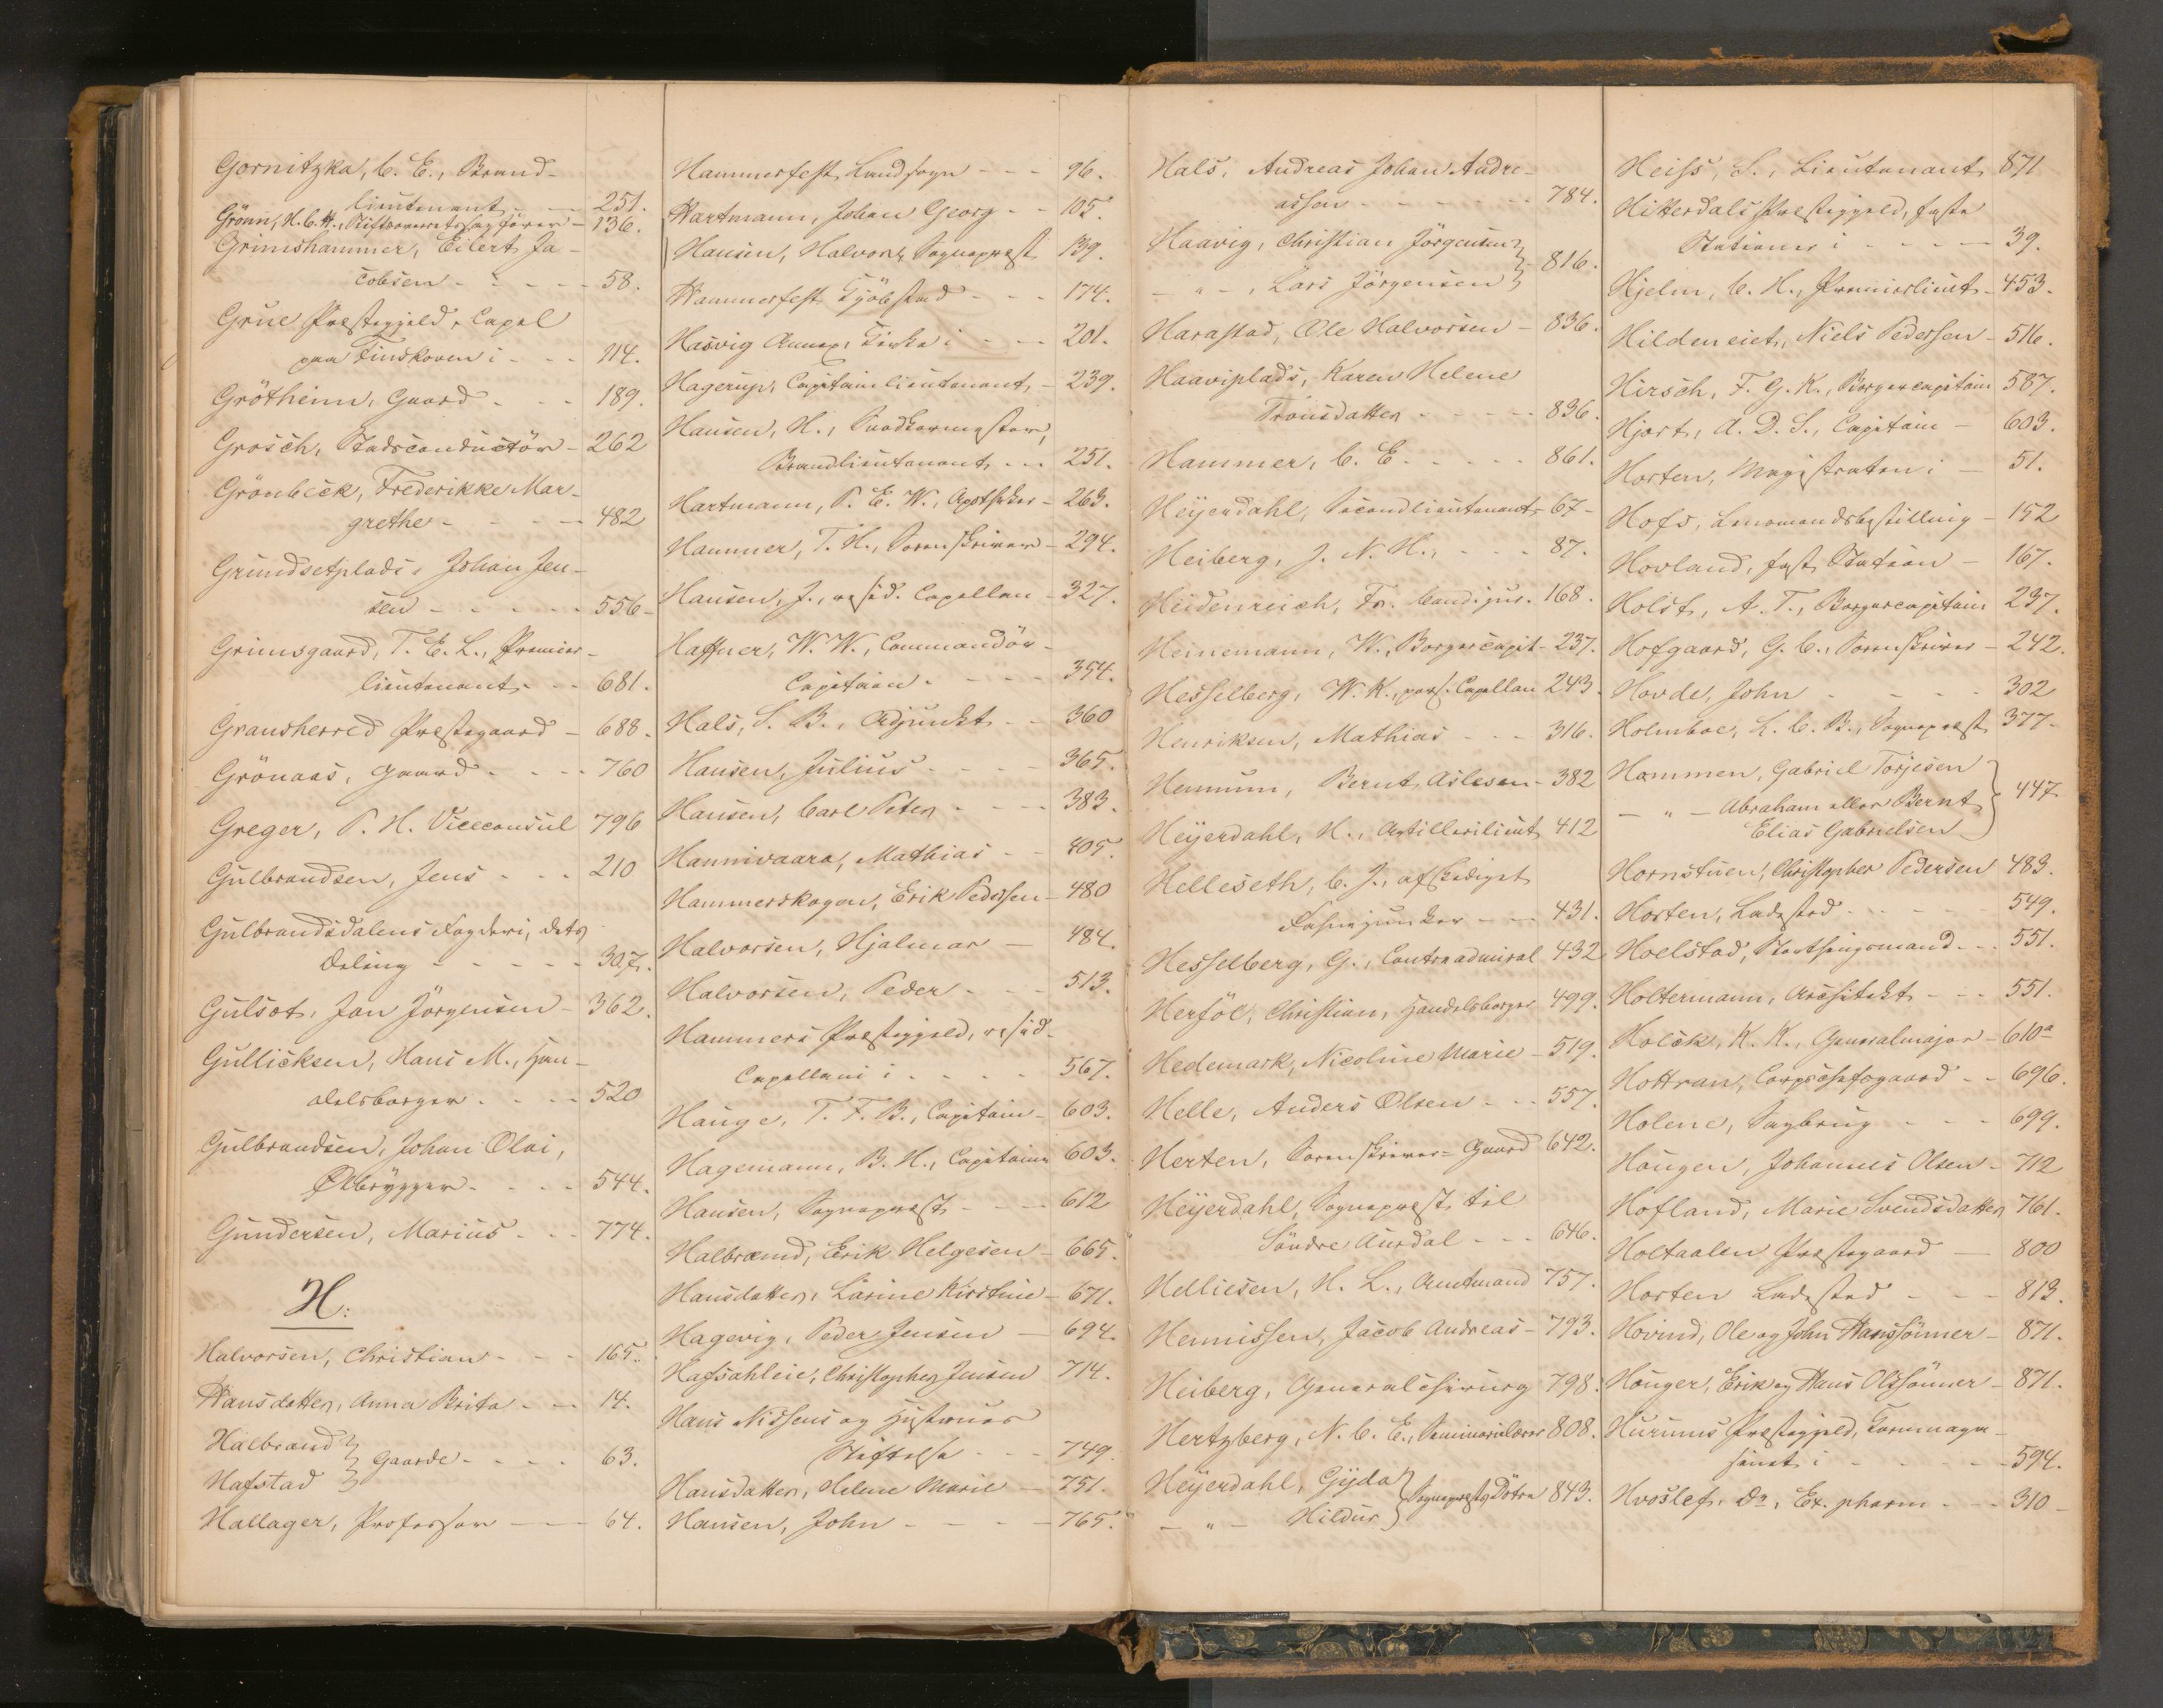 Gornitzka, C. E., Brand-
lieutenant - - 251.
Grönn, H. C. H., Stiftsoverretssagförer - 136.
Grimshammer, Eilert Ja-
cobsen - - - - 58.
Grue Præstegjeld, Capel
paa Findskoven i - - - 114.
Grötheim, Gaard - - - 189.
Grosch, Stadsconductör - 262
Grönbeck, Frederikke Mar-
grethe - - - - 482
Grundsetplads, Johan Jen-
sen - - - - - 556
Grimsgaard, T. E. L., Premier-
lieutenant - - 681.
Gransherred Præstegaard - 688.
Grönaas, Gaard - - - - 760
Greger, P. H. Viceconsul 796
Gulbrandsen, Jens - - - 210
Gulbrandsdalens Fogderi, dets
Deling - - - - - 307.
Gulsot, Jan Jörgensen - 362.
Gullicksen, Hans M., Han-
delsborger - - - - 520
Gulbrandsen, Johan Olai,
Ølbrygger - - - - 544.
Gundersen, Marius - - - 774.
H:
Halvorsen, Christian - - - 165.
Hansdatter, Anna Brita - - 14.
Halbrand } Gaarde - - - - 63.
Hafstad }
Hallager, Professor - - - 64.
Hammerfest Landsogn - - - 96.
Hartmann, Johan Georg - - 105.
Hansen, Halvor, Sogneprest 139.
Hammerfest Kjöbstad - - - 174.
Hasvig Annex, Kirke i - - - 201.
Hagerup, Capitainlieutenant - 239.
Hansen, H., Snedkermester,
Brandlieutenant - - - 251.
Hartmann, P. E. W., Apotheker - 263.
Hammer, T. H., Sorenskriver - 294.
Hansen, J., resid. Capellan - 327.
Haffner, W. W., Commandör-
Capitain - - - - 354.
Hals, S. B., Adjunkt - - 360
Hansen, Julius - - - - 365.
Hansen, Carl Peter - - - - 383.
Hannivaara, Mathias - - 405.
Hammerskogen, Erik Pedersen - 480
Halvorsen, Hjalmar - 484.
Halvorsen, Peder - - - 513.
Hammers Præstegjeld, resid.
Capellani i - - - - 567.
Hauge, T. F. B., Capitain - 603.
Hagemann, B. H., Capitain 603.
Hansen, Sogneprest - - - 612
Halbrænd, Erik Helgesen - 665.
Hansdatter, Larine Kirstine - 671.
Hagevig, Peder Jensen - 694.
Hafsahleie, Christopher Jensen 714.
Hans Nissens og Hustrues
Stiftelse - - - 749.
Hansdatter, Helene Marie - 751.
Hansen, John - - - - - 765.
Hals, Andreas Johan Andre-
assen - - - - - - 784.
Haavig, Christian Jörgensen } 816.
- " - , Lars Jörgensen }
Harastad, Ole Halvorsen - 836.
Haaviplads, Karen Helene
Trönsdatter - - - - - 836.
Hammer, C. E. - - - - - 861.
Heyerdahl, Secondlieutenant - 67 -
Heiberg, J. N. H., - - - 87.
Heidenreich, Fr. Cand. jur. 168.
Heinemann, W., Borgercapit - 237.
Hesselberg, W. K., pers. Capellan 243.
Henriksen, Mathias - - - 316.
Hennum, Bernt Aslesen - 382
Heyerdahl, H., Artillerilieut 412
Helleseth, C. J., afskediget
Fahnejunker - - - 431.
Hesselberg, G., Contreadmiral 432
Herföl, Christian, Handelsborger 499.
Hedemark, Nicoline Marie - 519.
Helle, Anders Olsen - - - 557.
Herten, Sorenskriver-Gaard 642.
Heyerdahl, Sogneprest til
Söndre Aurdal - - - 646.
Helliesen, H. L., Amtmand 757.
Hennissen, Jacob Andreas - 793.
Heiberg, Generalchirurg 798.
Hertzberg, N. C. E., Seminarielærer 808.
Heyerdahl, Gyda } Sogneprests Dötre 843.
- " - Hildur }
Heiss, S., Lieutenant 871
Hitterdals Præstegjeld, faste
Stationer i - - - - 39.
Hjelm, C. H., Premierlieut - 453.
Hildeneiet, Niels Pedersen - 516.
Hirsch, F. G. K., Borgercapitain 587.
Hjort, A. D. S., Capitain - 603.
Horten, Magistraten i - 51.
Hofs, Lensmandsbestilling - 152
Hovland, fast Station - 167.
Holst, A. T., Borgercapitain 237.
Hofgaard, G. C., Sorenskriver - 242.
Hovde, John - - - - 302
Holmboe, L. C. B., Sogneprest 377 -
Hommen, Gabriel Torjesen } 447.
- " - Abraham eller Bernt
Elias Gabrielsen }
Hornstuen, Christopher Pedersen 483.
Horten, Ladested - - - - - 549.
Hoelstad, Storthingsmand - - - 551.
Holtermann, Architekt - - - 551.
Holck, K. K., Generalmajor - 610 a
Hottran, Corpschefsgaard - - 696.
Holene, Sagbrug - - - 699.
Hougen, Johannes Olsen - 712
Hofland, Marie Svendsdatter 761.
Holtaalen Præstegaard - 800
Horten Ladested - - - 813.
Hovind, Ole og John Hanssönner - 871.
Houger, Erik og Hans Olssönner - 871.
Hurums Præstegjeld, Kornmaga-
sinet i - - - - - 594.
Hvoslef, Dr., Ex. pharm. - - - 310 -